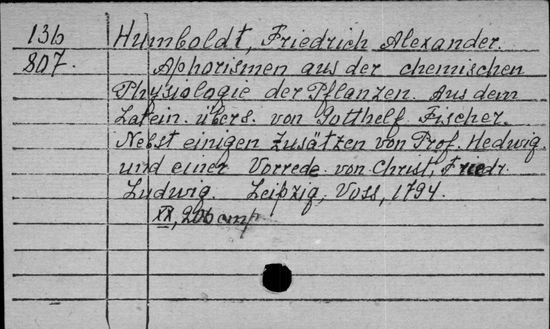 136 Humboldt, Friedrich Alexander.
807. Aphorismen aus der chemischen
Physiologie der Pflanzen. Aus dem
Latein. übers. von Gotthelf Fischer.
Nebst einigen Zusätzen von Prof. Hedwig
und einer Vorrede von Christ. Friedr.
Ludwig. Leipzig, Voss, 1794.
XX, 206 стр.